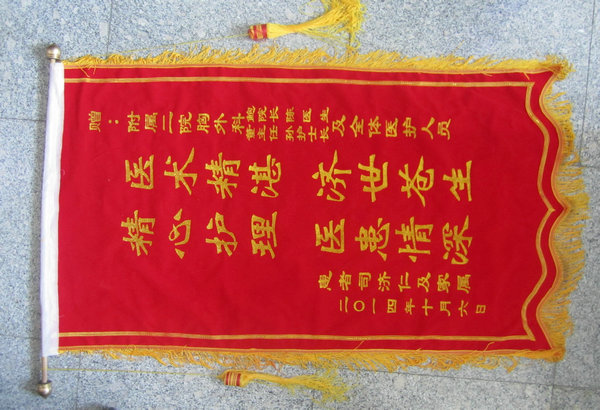 赠：附属二院胸外科
院长 陈医生
主任 孙护士长
及全体医护人员
医术精湛 济世苍生
精心护理 医患情深
患者司济仁及家属
二〇一四年十月六日